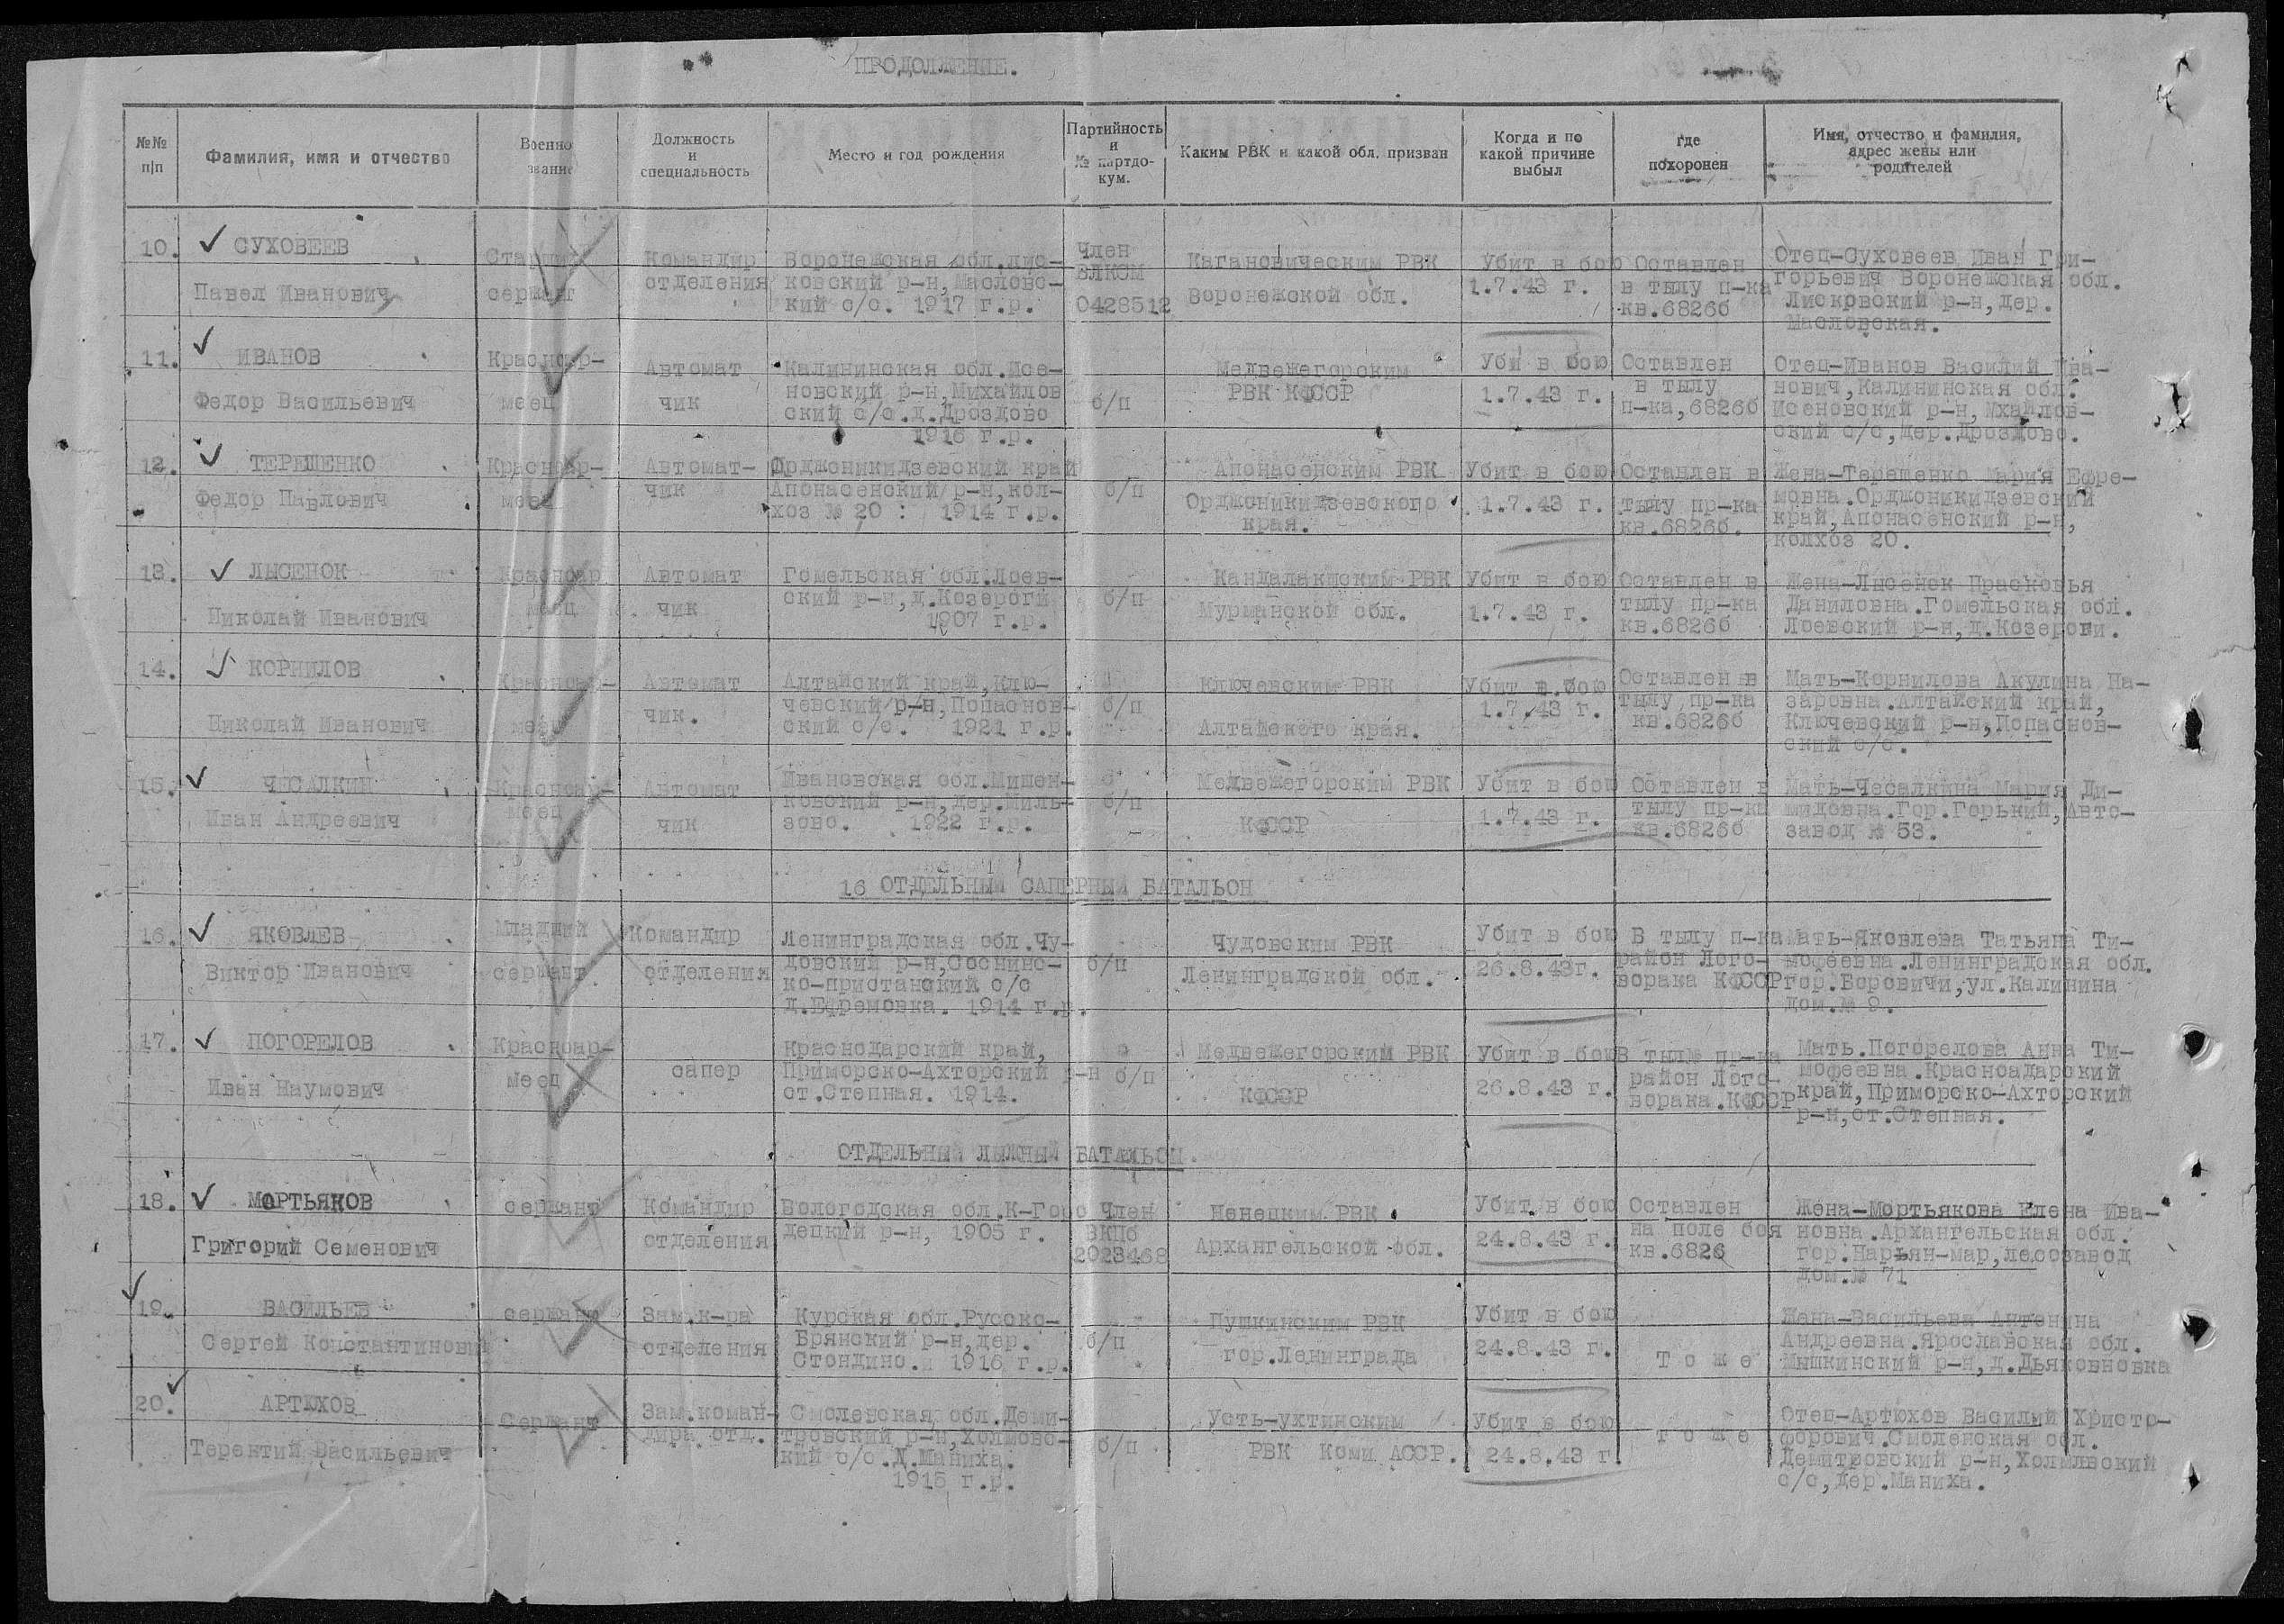 ПРОДОЛЖЕНИЕ.
№№ п/п
Фамилия, имя и отчество
Военно звание
Должность и специальность
Место и год рождения
Партийность и № партдокум.
Каким РВК и какой обл. призван
Когда и по какой причине выбыл
Где похоронен
Имя, отчество и фамилия, адрес жены или родителей
10. СУХОВЕЕВ
Павел Иванович
Старший
сержант
Командир
отделения
Воронежская обл.Лис-
ковский р-н, Масловс-
кий с/с. 1917 г.р.
Член
ВЛКСМ
0428512
Кагановическим РВК
Воронежской обл.
Убит в бою
1.7.43 г.
Оставлен
в тылу п-ка
кв.6826б
Отец-Суховеев Иван Гри-
горьевич Воронежская обл.
Лисковский р-н, дер.
Масловская.
11. ИВАНОВ
Федор Васильевич
Красноар-
меец
Автомат
чик
Калининская обл.Есе-
новский р-н, Михайлов
ский с/с.д.Дроздово
1916 г.р.
б/п
Медвежегорским
РВК КФССР
Уби в бою
1.7.43 г.
Оставлен
в тылу
п-ка, 6826б
Отец-Иванов Василий Ива-
нович, Калининская обл.
Исеновский р-н, Мхайлов-
ский с/с, дер. Дроздово.
12. ТЕРЕШЕНКО
Федор Павлович
Красноар-
меец
Автомат-
чик
Орджоникидзевский край
Апонасенский р-н, кол-
хоз № 20 : 1914 г.р.
б/п
Апонасенским РВК
Орджоникидзевского
края.
Убит в бою
1.7.43 г.
Оставлен в
тылу пр-ка
кв.6826б.
Жена-Терешенко Мария Ефре-
мовна.Орджоникидзевский
край, Апонасенский р-н,
колхоз 20.
13. ЛЫСЕНОК
Николай Иванович
Красноар
меец
Автомат
чик
Гомельская обл.Лоев-
ский р-н, д.Козероги
1907 г.р.
б/п
Кандалакшским РВК
Мурманской обл.
Убит в бою
1.7.43 г.
Оставлен в
тылу пр-ка
кв.6826б
Жена-Лысенок Прасковья
Даниловна.Гомельская обл.
Лоевский р-н, д.Козероги.
14. КОРНИЛОВ
Николай Иванович
Красноар-
меец
Автомат
чик.
Алтайский край, Клю-
чевский р-н, Попаснов-
ский с/с. 1921 г.р.
б/п
Ключевским РВК
Алтайского края.
Убит в бою
1.7.43 г.
Оставлен в
тылу пр-ка
кв.6826б
Мать-Корнилова Акулина На-
заровна.Алтайский край,
Ключевский р-н, Попаснов-
ский с/с.
15. ЧЕСАЛКИН
Иван Андреевич
Красноар-
меец
Автомат
чик
Ивановская обл.Мишен-
ковский р-н, дер.Миль-
зово. 1922 г.р.
б/п
Медвежегорским РВК
КФССР
Убит в бою
1.7.43 г.
Оставлен в
тылу пр-ка
кв.6826б
Мать-Чесалкина Мария Ди-
мидовна.Гор.Горький, Авто-
завод № 53.
16 ОТДЕЛЬНЫЙ САПЕРНЫЙ БАТАЛЬОН
16. ЯКОВЛЕВ
Виктор Иванович
Младший
сержант
Командир
отделения
Ленинградская обл.Чу-
довский р-н, Соснинс-
ко-пристанский с/с
д.Ефремовка. 1914 г.р.
б/п
Чудовским РВК
Ленинградской обл.
Убит в бою
26.8.43г.
В тылу п-ка
район Лого-
ворака КФССР
Мать-Яковлева Татьяна Ти-
мофеевна.Ленинградская обл.
гор.Боровичи, ул.Калинина
дом.№ 9.
17. ПОГОРЕЛОВ
Иван Наумович
Красноар-
меец
сапер
Краснодарский край,
Приморско-Ахторский р-н
ст.Степная. 1914.
б/п
Медвежегорским РВК
КФССР
Убит в бою
26.8.43 г.
В тылу пр-ка
район Лого-
ворака.КФССР
Мать.Погорелова Анна Ти-
мофеевна.Красноадарский
край, Приморско-Ахторский
р-н, ст.Степная.
ОТДЕЛЬНЫЙ ЛЫЖНЫЙ БАТАЛЬОН.
18. МОРТЬЯКОВ
Григорий Семенович
сержант
Командир
отделения
Вологодская обл.К-Горо
децкий р-н, 1905 г.
Член
ВКПб
2023468
Ненецким РВК
Архангельской обл.
Убит в бою
24.8.43 г.
Оставлен
на поле боя
кв.6826
Жена-Мортьякова Елена Ива-
новна.Архангельская обл.
гор.Нарьян-мар, лесозавод
дом.№ 71
19. ВАСИЛЬЕВ
Сергей Константинович
сержант
Зам.к-ра
отделения
Курская обл.Русско-
Брянский р-н, дер.
Стондино. 1916 г.р.
б/п
Пушкинским РВК
гор.Ленинграда
Убит в бою
24.8.43 г.
Тоже
Жена-Васильева Антонина
Андреевна.Ярославская обл.
Мышкинский р-н, д.Дьяковновка
20. АРТЮХОВ
Терентий Васильевич
Сержант
Зам.коман-
дира отд.
Смоленская обл.Деми-
тровский р-н, Холмовс-
кий с/с.Д.Маниха.
1915 г.р.
б/п
Усть-ухтинским
РВК Коми АССР.
Убит в бою
24.8.43 г
тоже
Отец-Артюхов Василий Христо-
форович.Смоленская обл.
Демитровский р-н, Холмлвский
с/с, дер.Маниха.